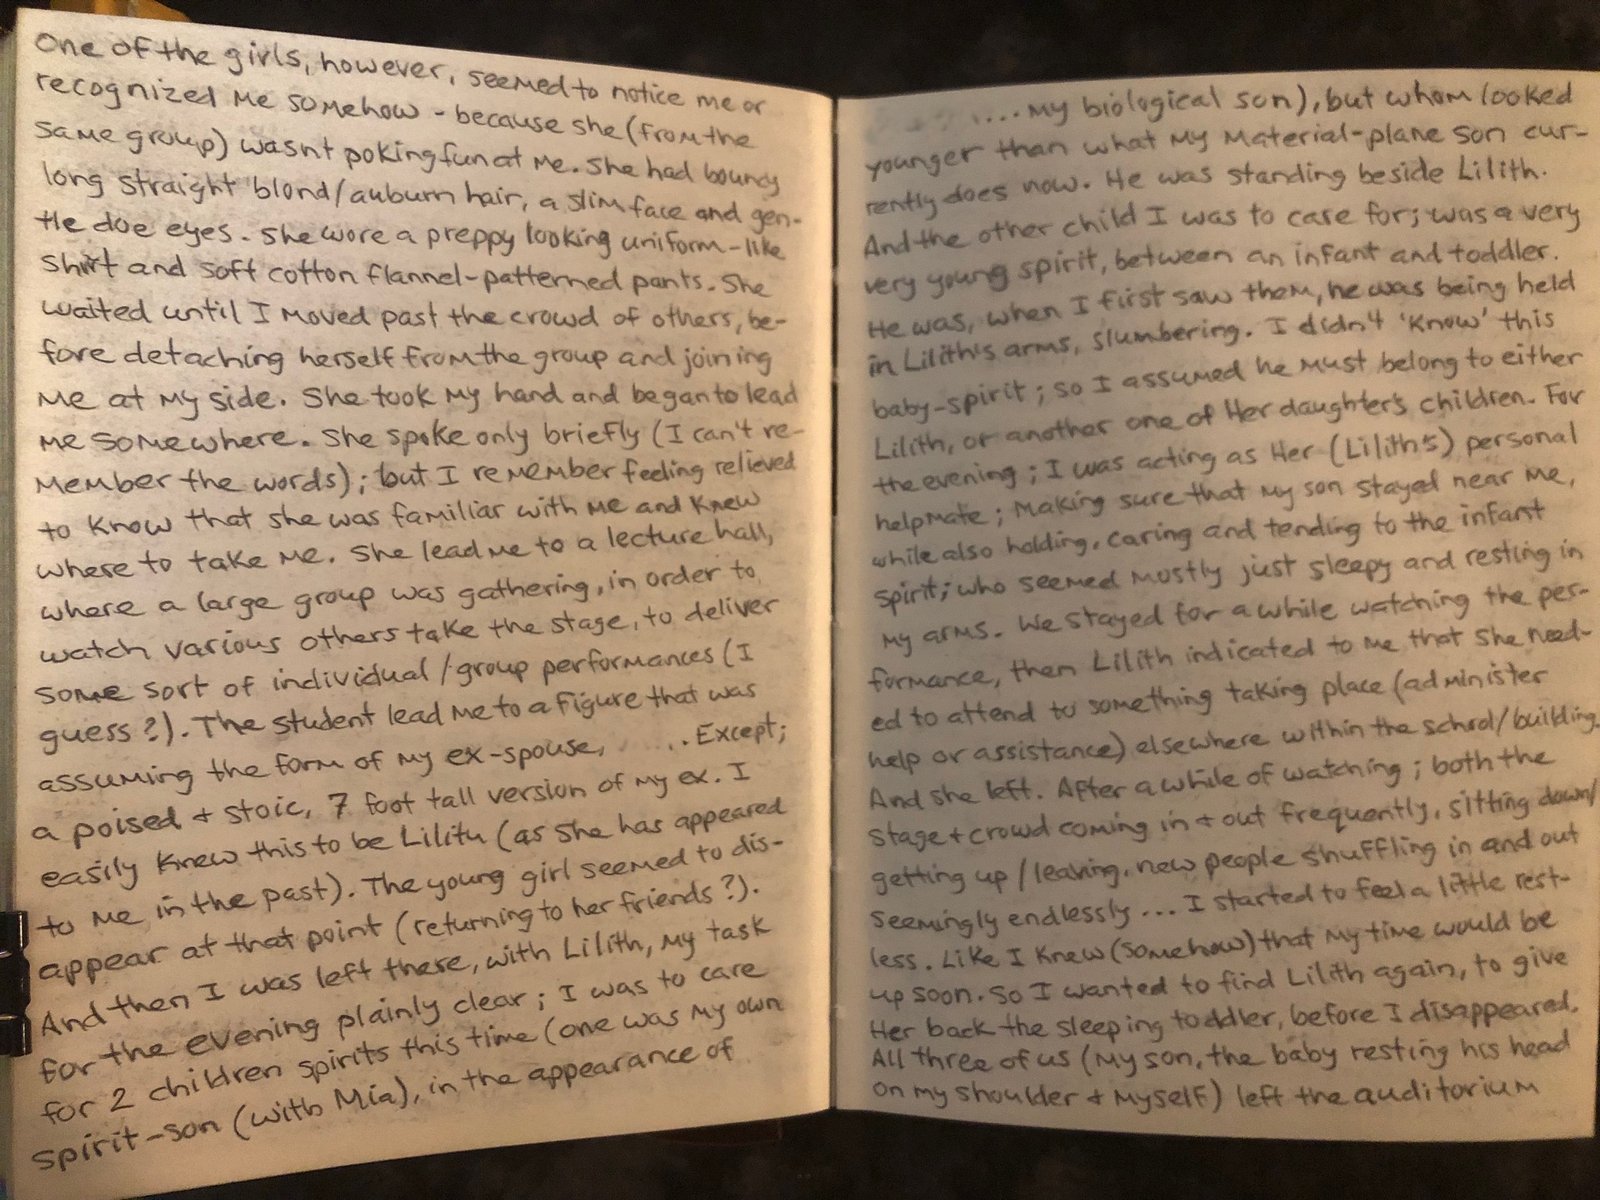 One of the girls, however, seemed to notice me or
recognized me somehow - because she (from the
same group) wasnt poking fun at me. She had bouncy
long straight blond/auburn hair, a slim face and gen-
tle doe eyes. She wore a preppy looking uniform-like
shirt and soft cotton flannel-patterned pants. She
waited until I moved past the crowd of others, be-
fore detaching herself from the group and joining
me at my side. She took my hand and began to lead
me somewhere. She spoke only briefly (I can't re-
member the words); but I remember feeling relieved
to know that she was familiar with me and knew
where to take me. She lead me to a lecture hall,
where a large group was gathering, in order to
watch various others take the stage, to deliver
some sort of individual/group performances (I
guess?). The student lead me to a figure that was
assuming the form of my ex-spouse, .. Except;
a poised + stoic, 7 foot tall version of my ex. I
easily knew this to be Lilith (as she has appeared
to me in the past). The young girl seemed to dis-
appear at that point (returning to her friends?).
And then I was left there, with Lilith, my task
for the evening plainly clear; I was to care
for 2 children spirits this time (one was my own
spirit-son (with Mia), in the appearance of
....my biological son), but whom looked
younger than what my material-plane son cur-
rently does now. He was standing beside Lilith.
And the other child I was to care for; was a very
very young spirit, between an infant and toddler.
He was, when I first saw them, he was being held
in Lilith's arms, slumbering. I didn't 'know' this
baby-spirit; so I assumed he must belong to either
Lilith, or another one of Her daughter's children. For
the evening; I was acting as Her (Lilith's) personal
helpmate; making sure that my son stayed near me,
while also holding, caring and tending to the infant
spirit; who seemed mostly just sleepy and resting in
my arms. We stayed for a while watching the per-
formance, then Lilith indicated to me that she need-
ed to attend to something taking place (administer
help or assistance) elsewhere within the school/building.
And she left. After a while of watching; both the
stage + crowd coming in + out frequently, sitting down/
getting up/leaving, new people shuffling in and out
seemingly endlessly... I started to feel a little rest-
less. Like I knew (somehow) that my time would be
up soon. So I wanted to find Lilith again, to give
Her back the sleeping toddler, before I disappeared.
All three of us (my son, the baby resting his head
on my shoulder + myself) left the auditorium